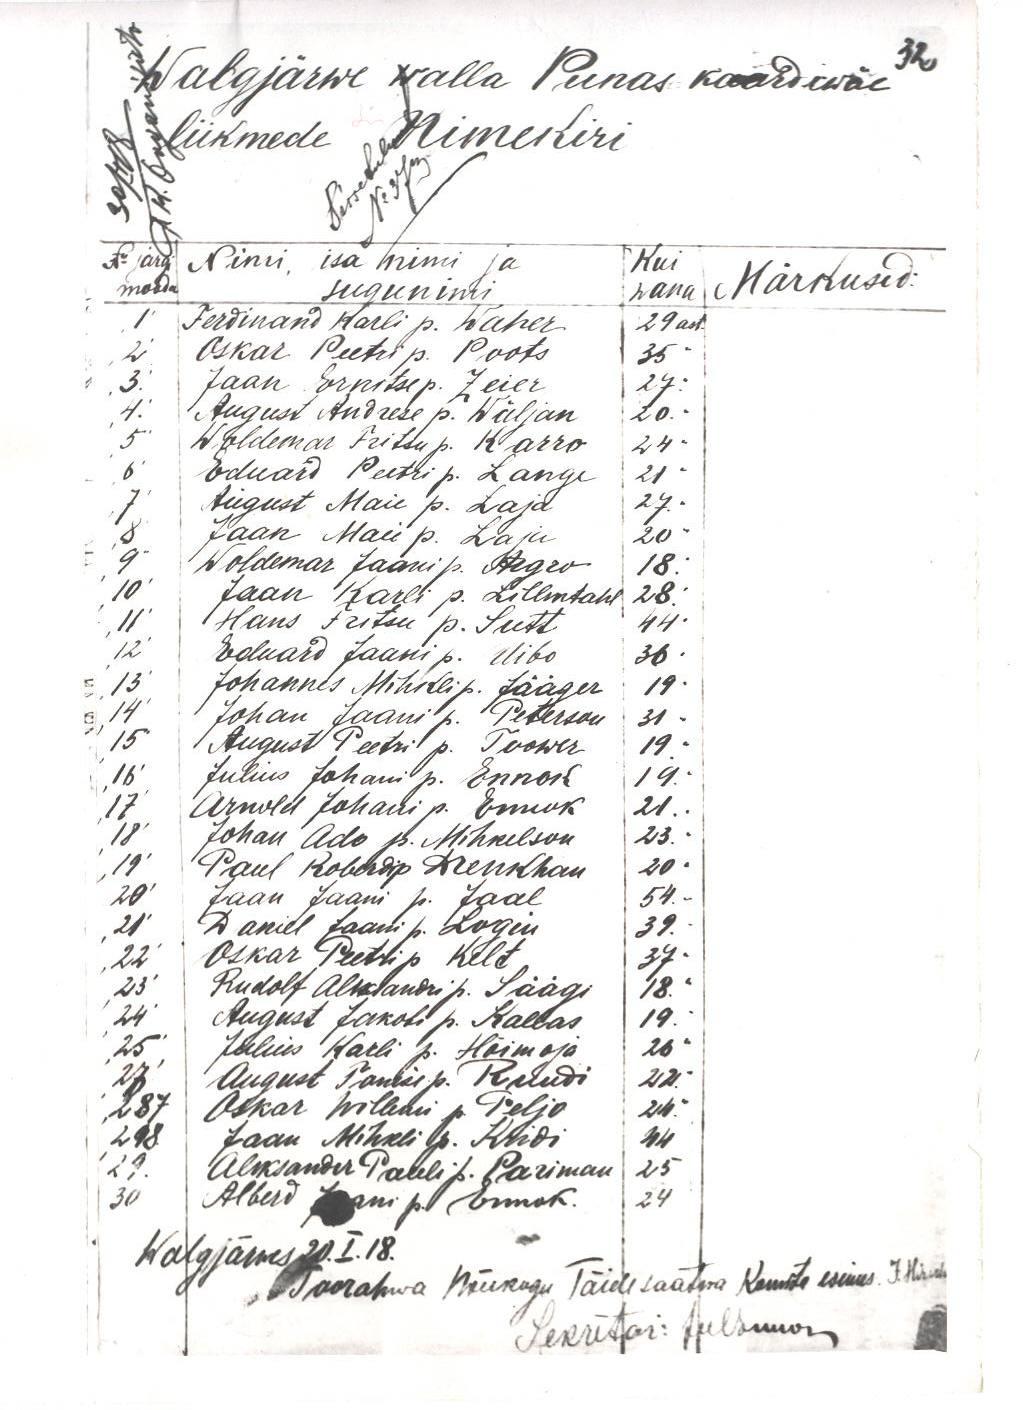 32
Walgjärwe walla Punas kaardiwäe
liikmede Nimekiri
№ järgi Nimi, isa nimi ja Kui Märkused:
mööda sugunimi wana
1 Ferdinand Karli p. Waher 29 ast.
2 Oskar Peetri p. Poots 35 "
3. Jaan Ernitse p. Zeier 27 "
4. August Andrese p. Wäljan 20. "
5 Woldemar Fritsu p. Karro 24 "
6 Eduard Peetri p. Lange 21 "
7 August Maii p. Laja 27 "
8 Jaan Maii p. Laju 20 "
9 Woldemar Jaani p. Argro 18 "
10 Jaan Karli p. Lillmtahl 28 "
11 Hans Fritsu p. Sutt 44 "
12 Eduard Jaani p. Uibo 36 "
13 Johannes Mihkli p. Jääger 19 "
14 Johan Jaani p. Peterson 31 "
15 August Peetri p. Toower 19. "
16 Julius Johani p. Ennok 19. "
17 Arnold Johani p. Ennok 21. "
18 Johan Ado p. Mihkelson 23. "
19 Paul Roberdi p Drenkhan 20 "
20 Jaan Jaani p. Jaal 54. "
21 Daniel Jaani p. Login 39. "
22 Oskar Peetri p Kelt 37 "
23 Rudolf Aleksandri p. Säägi 18. "
24 August Jakobi p. Kallas 19. "
25 Julius Karli p. Hõimoja 26 "
26 August Tanise p. Ruudi 22. "
27 Oskar Willemi p Peljo 24. "
28 Jaan Mihkli p. Kridi 44
29. Aleksander Pauli p. Pariman 25
30 Alberd Jaani p. Ennok. 24
Walgjärwes 20. I. 18.
Töörahwa Nõukogu Täidesaatwa Komite esimes.
Sekretär: